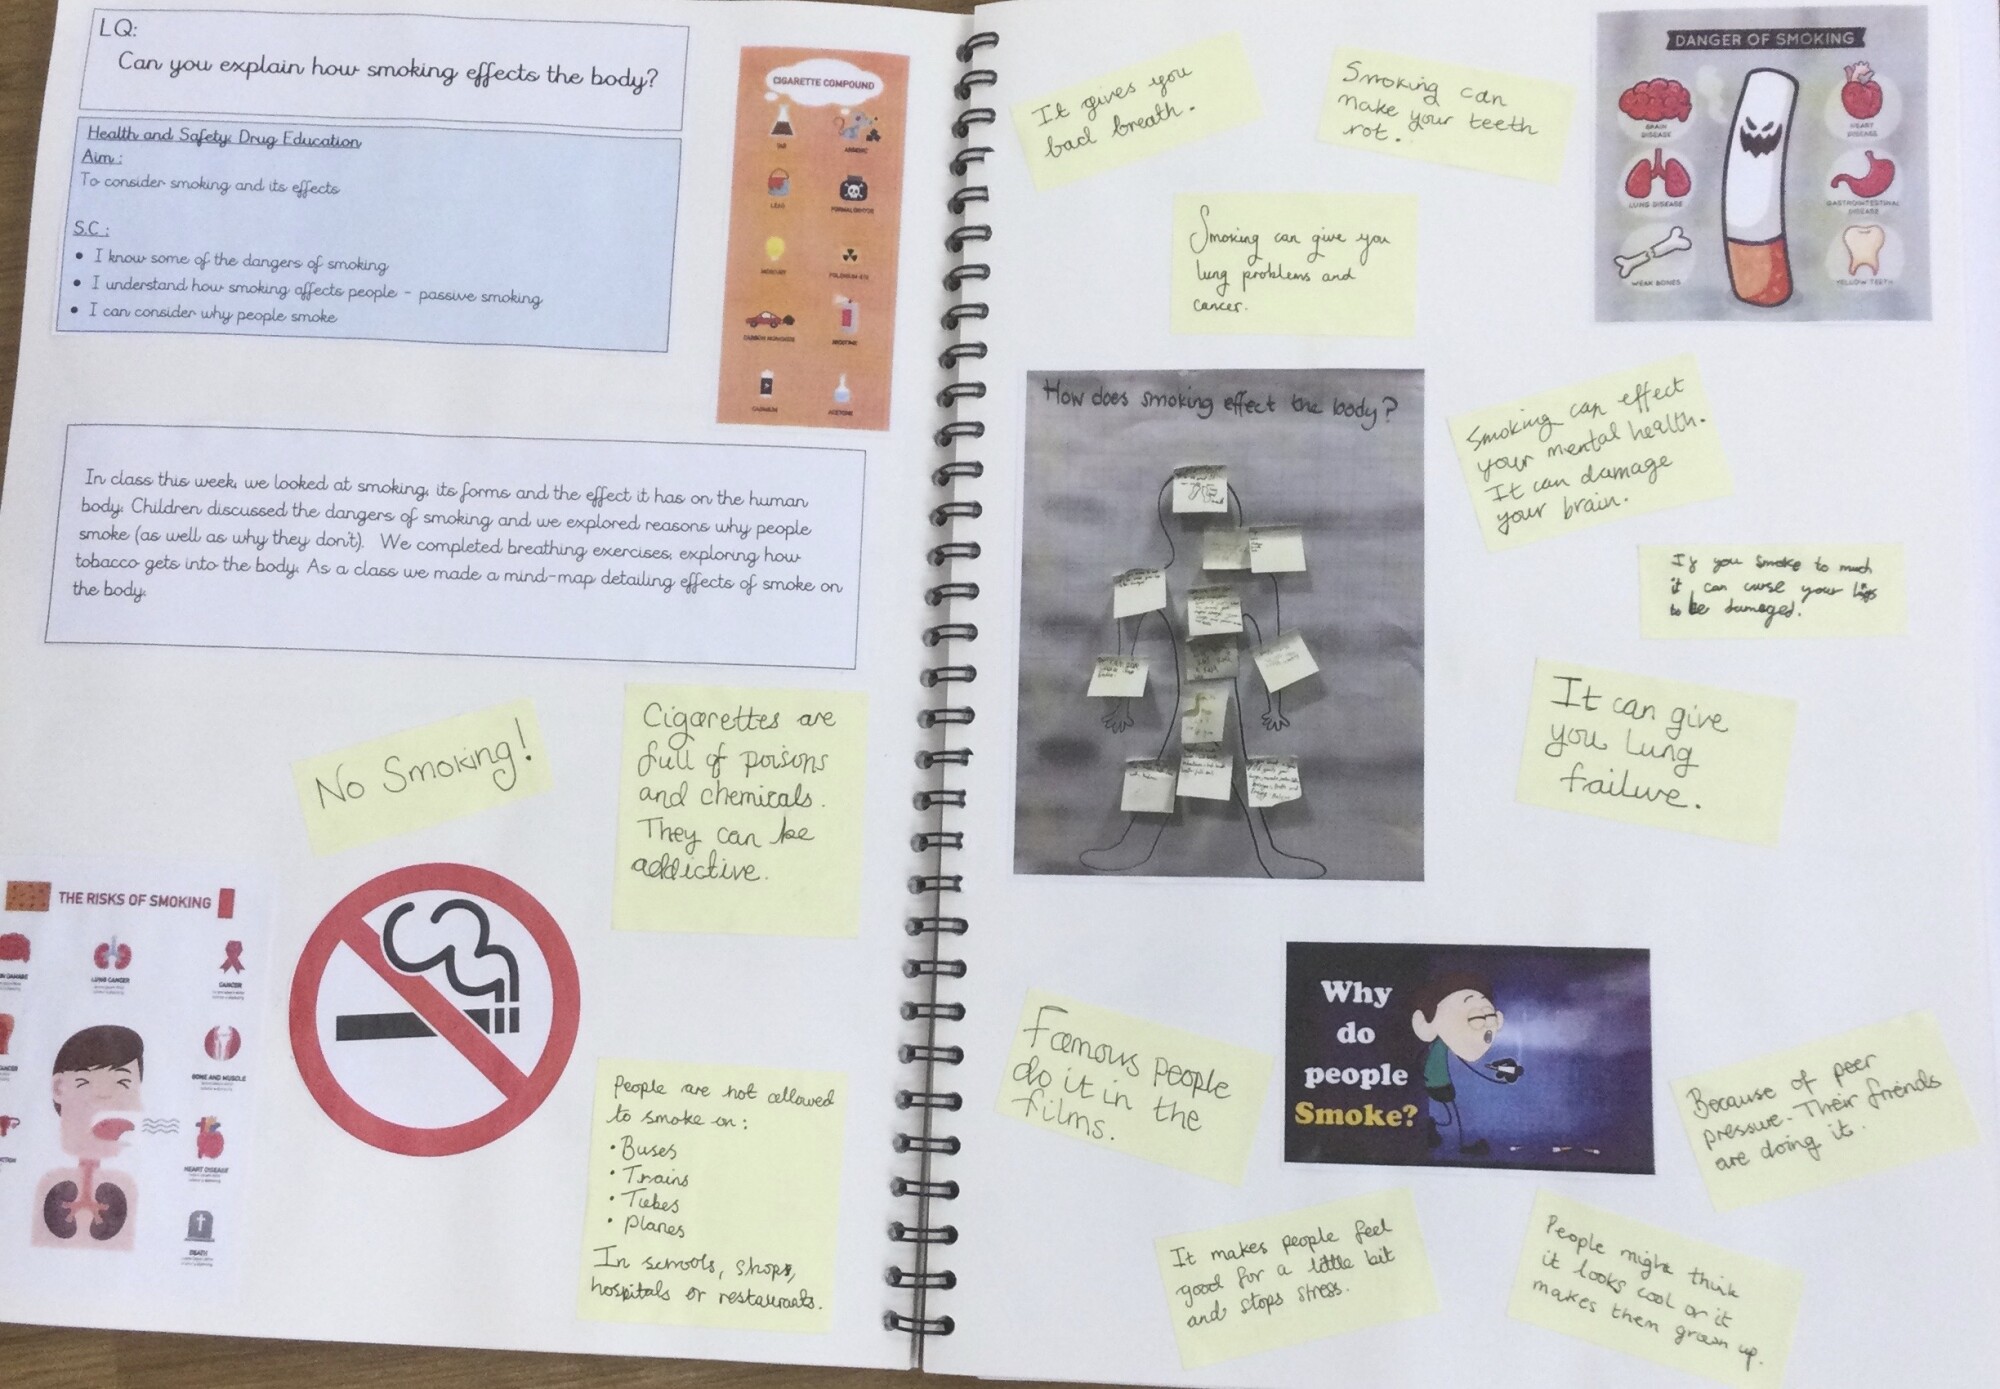 LQ:
Can you explain how smoking effects the body?
Health and Safety: Drug Education
Aim:
To consider smoking and its effects
S.C:
• I know some of the dangers of smoking
• I understand how smoking affects people - passive smoking
• I can consider why people smoke
CIGARETTE COMPOUND
TAR
ARSENIC
LEAD
FORMALDEHYDE
MERCURY
POLONIUM-210
CARBON MONOXIDE
NICOTINE
CADMIUM
ACETONE
In class this week, we looked at smoking, its forms and the effect it has on the human
body. Children discussed the dangers of smoking and we explored reasons why people
smoke (as well as why they don't). We completed breathing exercises, exploring how
tobacco gets into the body. As a class we made a mind-map detailing effects of smoke on
the body.
No Smoking!
Cigarettes are
full of poisons
and chemicals.
They can be
addictive.
THE RISKS OF SMOKING
LUNG CANCER
CANCER
BONE AND MUSCLE
HEART DISEASE
DEATH
People are not allowed
to smoke on:
• Buses
• Trains
• Tubes
• Planes
In schools, shops,
hospitals or restaurants.
It gives you
bad breath.
Smoking can
make your teeth
rot.
Smoking can give you
lung problems and
cancer.
DANGER OF SMOKING
BRAIN
DISEASE
HEART
DISEASE
LUNG DISEASE
GASTROINTESTINAL
DISEASE
WEAK BONES
YELLOW TEETH
How does smoking effect the body?
Smoking can effect
your mental health.
It can damage
your brain.
If you smoke to much
it can curse your
to be damaged.
It can give
you lung
failure.
Why
do
people
Smoke?
Famous people
do it in the
films.
Because of peer
pressure. Their friends
are doing it.
It makes people feel
good for a little bit
and stops stress.
People might think
it looks cool or it
makes them grown up.